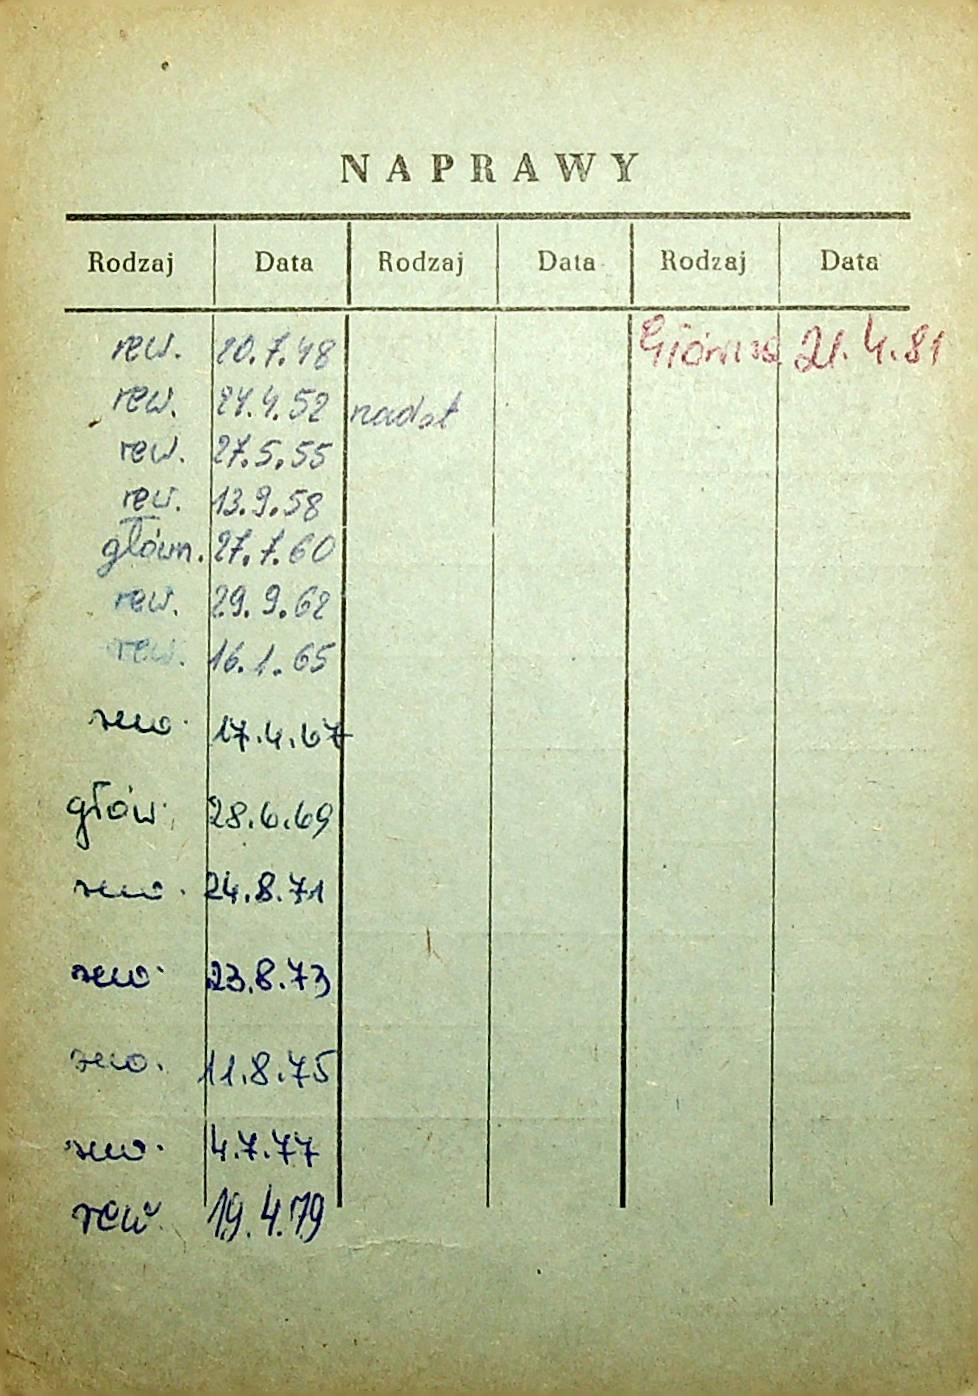 NAPRAWY
Rodzaj Data Rodzaj Data Rodzaj Data
rew. 20.7.48 Główna 21.4.81
rew. 24.4.52
rew. 27.5.55
rew. 13.9.58
główn. 27.7.60
rew. 29.9.62
rew. 16.1.65
rew. 17.4.67
głów. 28.6.69
rew. 24.8.71
rew. 23.8.73
rew. 11.8.75
rew. 4.7.77
rew. 19.4.79